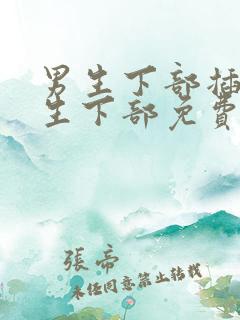 男生下部插
生下部免费
張帝
未经同意禁止转载